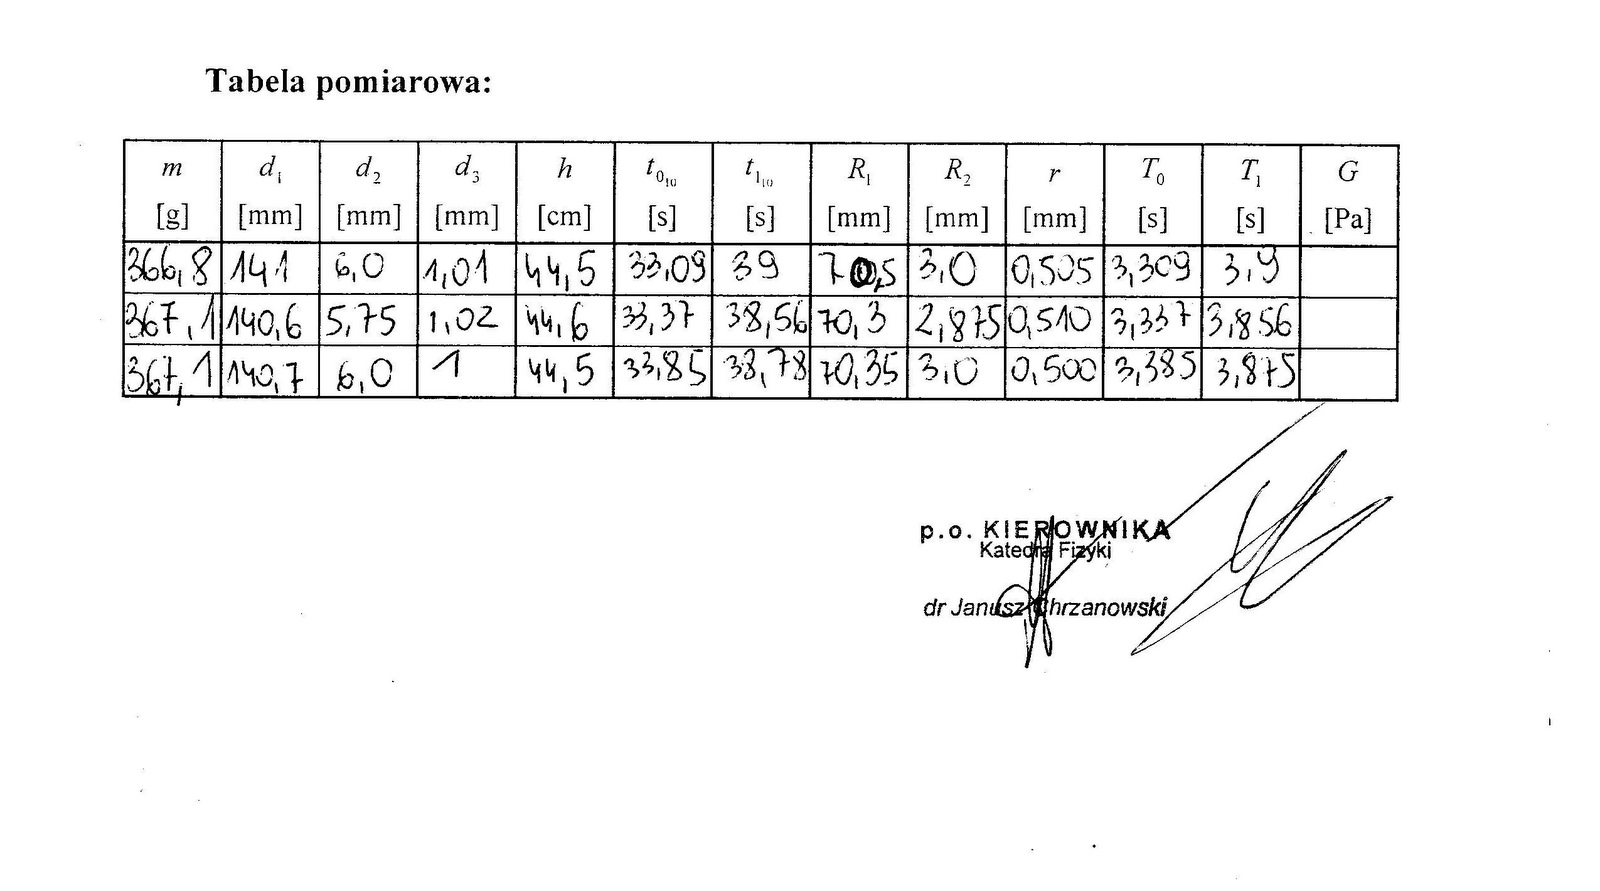 Tabela pomiarowa:
m d₁ d₂ d₃ h t₀₁₀ t₁₁₀ R₁ R₂ r T₀ T₁ G
[g] [mm] [mm] [mm] [cm] [s] [s] [mm] [mm] [mm] [s] [s] [Pa]
366,8 141 6,0 1,01 44,5 33,09 39 70,5 3,0 0,505 3,309 3,9
367,1 140,6 5,75 1,02 44,6 33,37 38,56 70,3 2,875 0,510 3,337 3,856
367,1 140,7 6,0 1 44,5 33,85 38,78 70,35 3,0 0,500 3,385 3,875
p.o. KIEROWNIKA
Katedra Fizyki
dr Janusz Chrzanowski